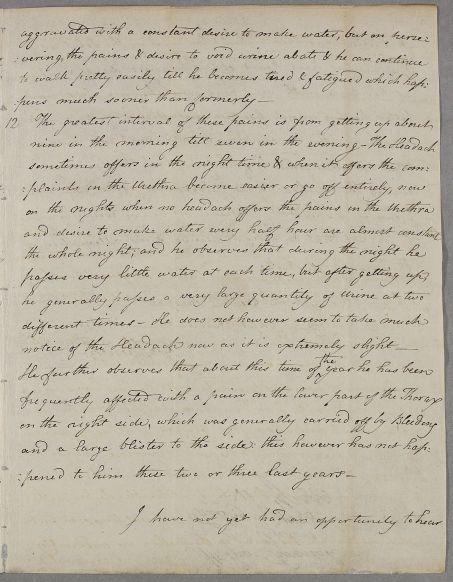 aggravated with a constant desire to make water, but on perse-
:vering, the pains & desire to void urine abate & he can continue
to walk pretty easily till he becomes tired & fatigued which hap:
:pens much sooner than formerly —
12 The greatest interval of these pains is from getting up about
nine in the morning till seven in the evening - The headach
sometimes offers in the night time & when it offers the com-
:plaints in the Urethra become easier or go off entirely, now
on the nights when no headach offers the pains in the Urethra
and desire to make water every half hour are almost constant
the whole night; and he observes that during the night he
passes very little water at each time, but after getting up,
he generally passes a very large quantity of Urine at two
different times - He does not however seem to take much
notice of the Headach now as it is extremely slight —
He further observes that about this time of the year he has been
frequently affected with a pain on the lower part of the Thorax
on the right side, which was generally carried off by Bleeding
and a large blister to the side: this however has not hap:
:pened to him these two or three last years —
I have not yet had an opportunity to hear